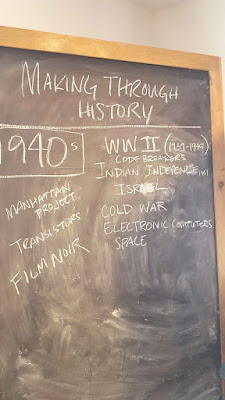 MAKING THROUGH
HISTORY
1940s
MANHATTAN
PROJECT
TRANSISTORS
FILM NOIR
WW II
CODE BREAKERS
INDIAN INDEPENDE
ISRAEL
COLD WAR
ELECTRONIC COMPUTERS
SPACE